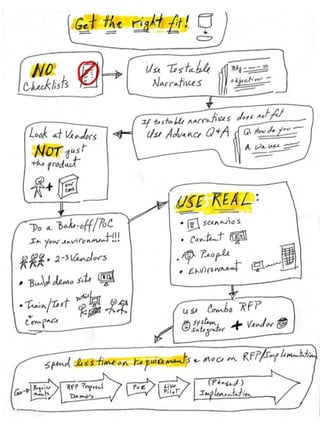 Get the right fit!
NO
Checklists
Use Testable
Narratives
My
objective
If testable narratives does not fit
Use Advance Q&A
Q. How do you
A. We use
Look at Vendors
NOT just
the product
Do a Bake-off/PoC
In your environment!!!
2-3 Vendors
• Build demo site
• Train/Test
Compare
USE REAL:
• scenarios
• Content
• People
• Environment
Use Combo RFP
System
Integrator + Vendor
Spend less time on requirements & more on RFP/Implementation
Require
ments
RFP Proposal
Demos
PoC
Live
Pilot
(Phased)
Implementation